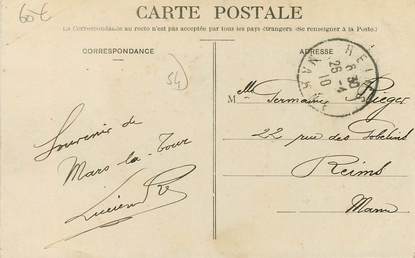 60€
CARTE POSTALE
La Correspondance au recto n'est pas acceptée par tous les pays étrangers (Se renseigner à la Poste.)
CORRESPONDANCE
ADRESSE
54
REIMS
8 30
26 - 4
10
MARNE
Mlle Germaine Rieger
22 rue des Gobelins
Reims
Marne
Souvenir de
Mars la-Tour
Lucien